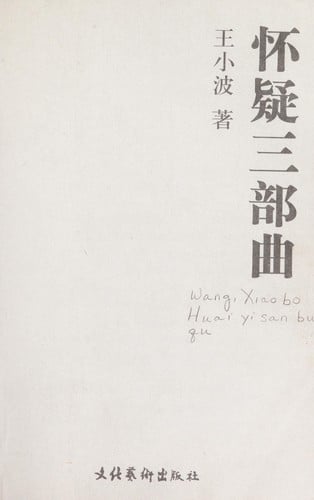 怀疑三部曲
王小波 著
Wang, Xiaobo
Huai yi san bu
qu
文化藝術出版社